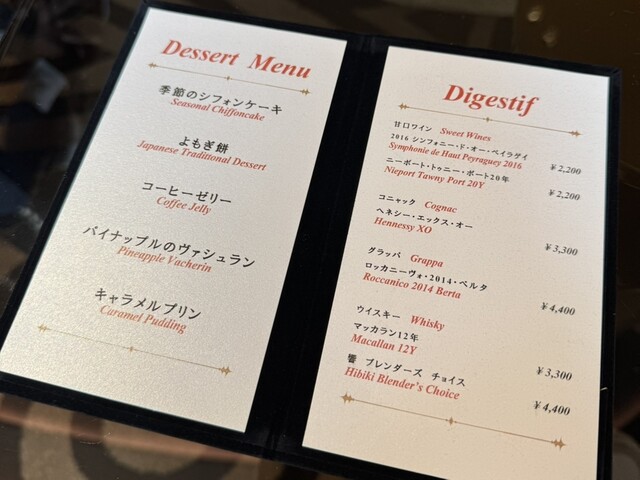 Dessert Menu
季節のシフォンケーキ
Seasonal Chiffoncake
よもぎ餅
Japanese Traditional Dessert
コーヒーゼリー
Coffee Jelly
パイナップルのヴァシュラン
Pineapple Vacherin
キャラメルプリン
Caramel Pudding
Digestif
甘口ワイン Sweet Wines
2016 シンフォニー・ド・オー・ペイラゲイ
Symphonie de Haut Peyraguey 2016 ¥2,200
ニーポート・トゥニー・ポート20年
Nieport Tawny Port 20Y ¥2,200
コニャック Cognac
ヘネシー・エックス・オー
Hennessy XO ¥3,300
グラッパ Grappa
ロッカニーヴォ・2014・ベルタ
Roccanico 2014 Berta ¥4,400
ウイスキー Whisky
マッカラン12年
Macallan 12Y ¥3,300
響 ブレンダーズ チョイス
Hibiki Blender's Choice ¥4,400